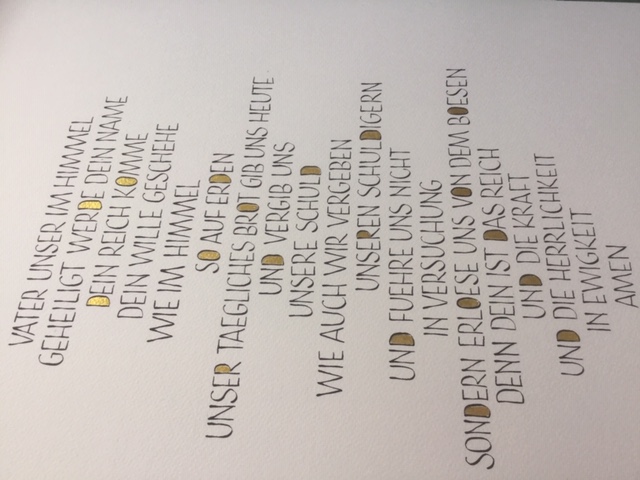 VATER UNSER IM HIMMEL
GEHEILIGT WERDE DEIN NAME
DEIN REICH KOMME
DEIN WILLE GESCHEHE
WIE IM HIMMEL
SO AUF ERDEN
UNSER TAEGLICHES BROT GIB UNS HEUTE.
UND VERGIB UNS
UNSERE SCHULD
WIE AUCH WIR VERGEBEN
UNSEREN SCHULDIGERN
UND FUEHRE UNS NICHT
IN VERSUCHUNG
SONDERN ERLOESE UNS VON DEM BOESEN
DENN DEIN IST DAS REICH
UND DIE KRAFT
UND DIE HERRLICHKEIT
IN EWIGKEIT
AMEN